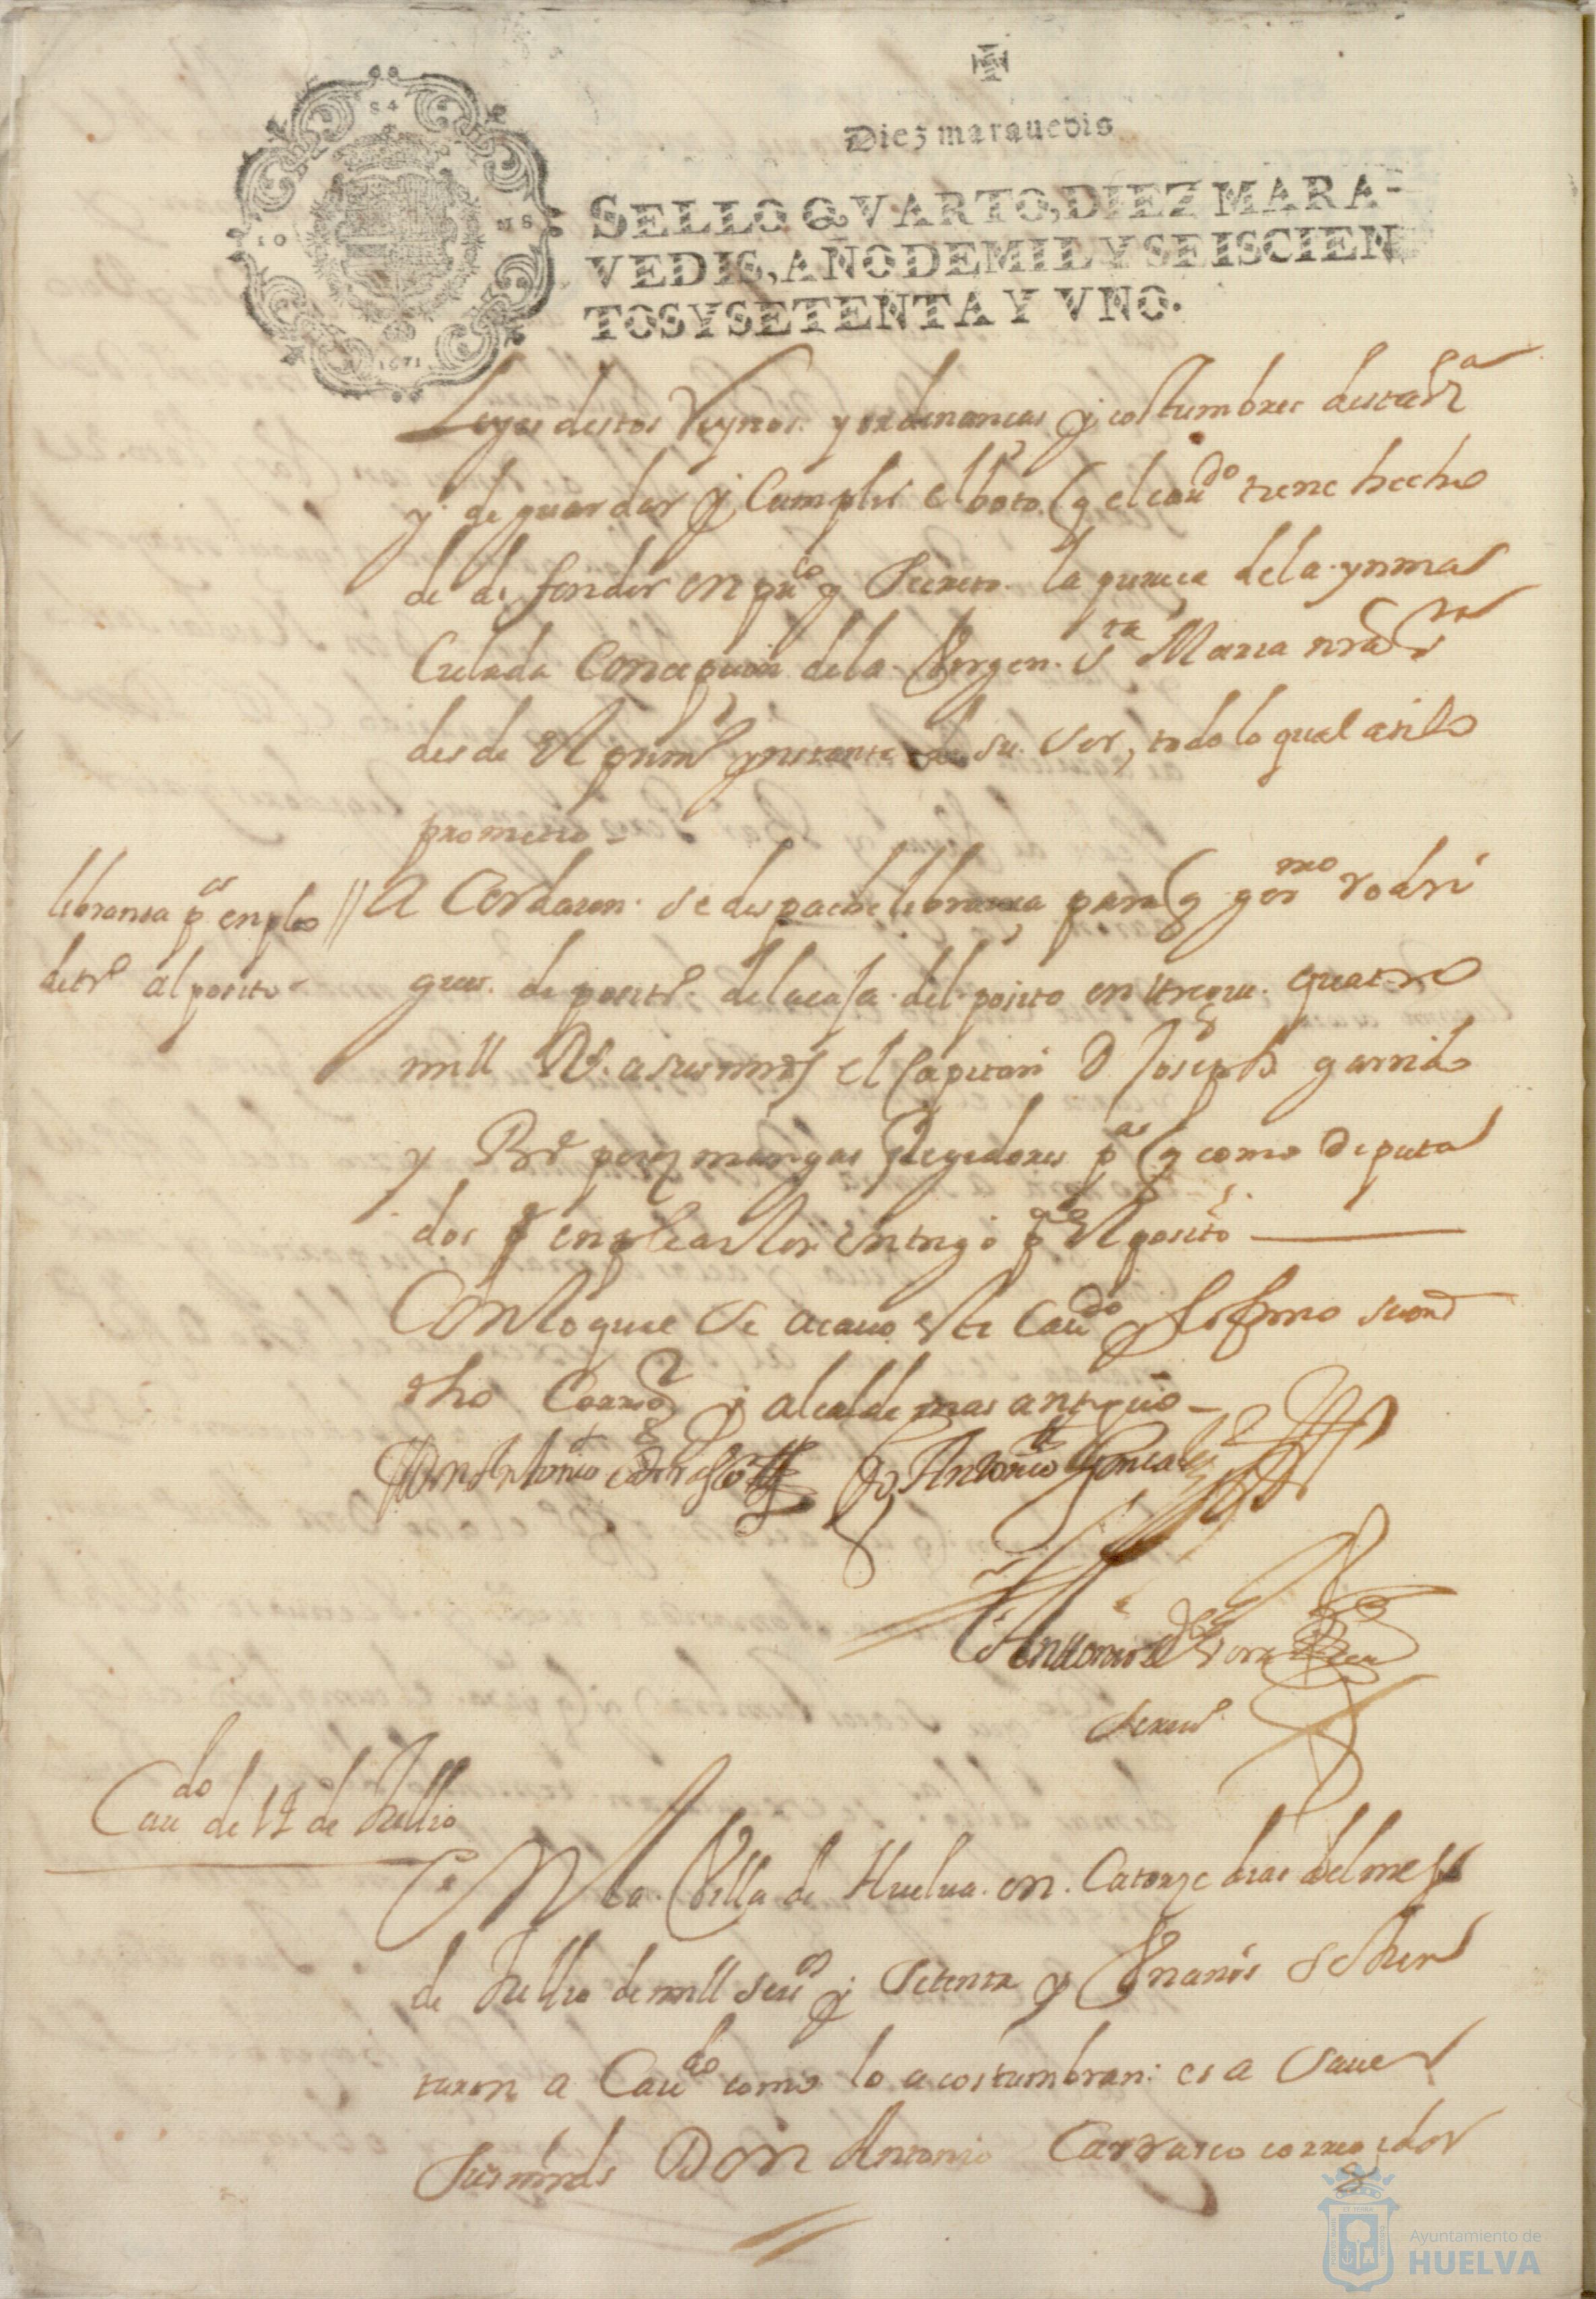 Diez marauedis
SELLO QVARTO, DIEZ MARA-
VEDIS, AÑO DE MIL Y SEISCIEN
TOS Y SETENTA Y VNO.
1671
Leyes destos Reynos y ordenancas y costumbres desta Va
y de guardar y Cumplir el boto q el caudo tiene hecho
de defender en puco y secreto la pureça de la ynma
Culada Concepcion de la Virgen sta Maria nra sra
desde el primo ynstante de su ser, todo lo qual asi lo
prometio
libranca pa enpleo
de tro al posito
Acordaron se despache libranca para q germo rodri
gues depositro de la casa del posito entregue quatro
mill Rs a sus mrds el Capitan D Joseph garrido
y Bme perez mangas Regedores pa q como Diputa
dos pa enplearlos en trigo pa el posito
Con lo qual se acauo este Caudo y lo firmo su md
dho Corregor y alcalde mas antiguo
Don Antonio Carrasco
Antonio Gonçales
Antonio de
Caudo de 14 de Jullio
En la Villa de Huelua en Catorze dias del mes
de Jullio de mill seisos y setenta y Vn años se Jun
taron a Caudo como lo acostumbran: es a sauer
sus mrds Don Antonio Carrasco corregidor
Ayuntamiento de
HUELVA